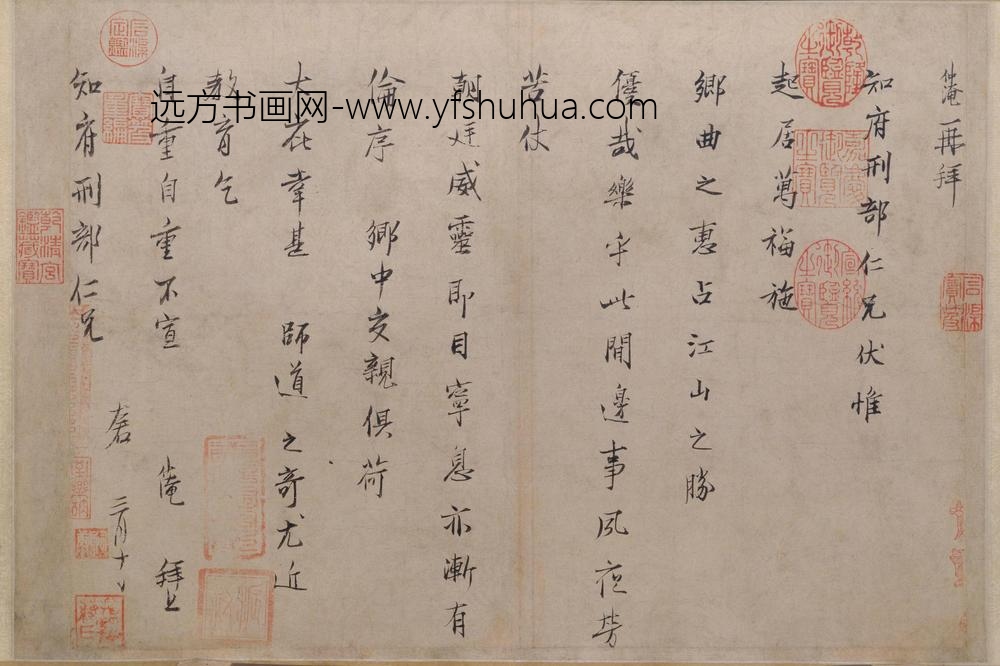 仲淹再拜
知府刑部仁兄伏惟
起居萬福施
鄉曲之惠占江山之勝
優哉樂乎此間邊事夙夜勞
苦仗
朝廷威靈即目寧息亦漸有
倫序 鄉中交親俱荷
大庇幸甚 師道之奇尤近
教育乞
自重自重不宣
仲淹 拜上
知府刑部仁兄
三月十
远方书画网-www.yfshuhua.com
乾隆御覽之寶
嘉慶御覽之寶
宣統御覽之寶